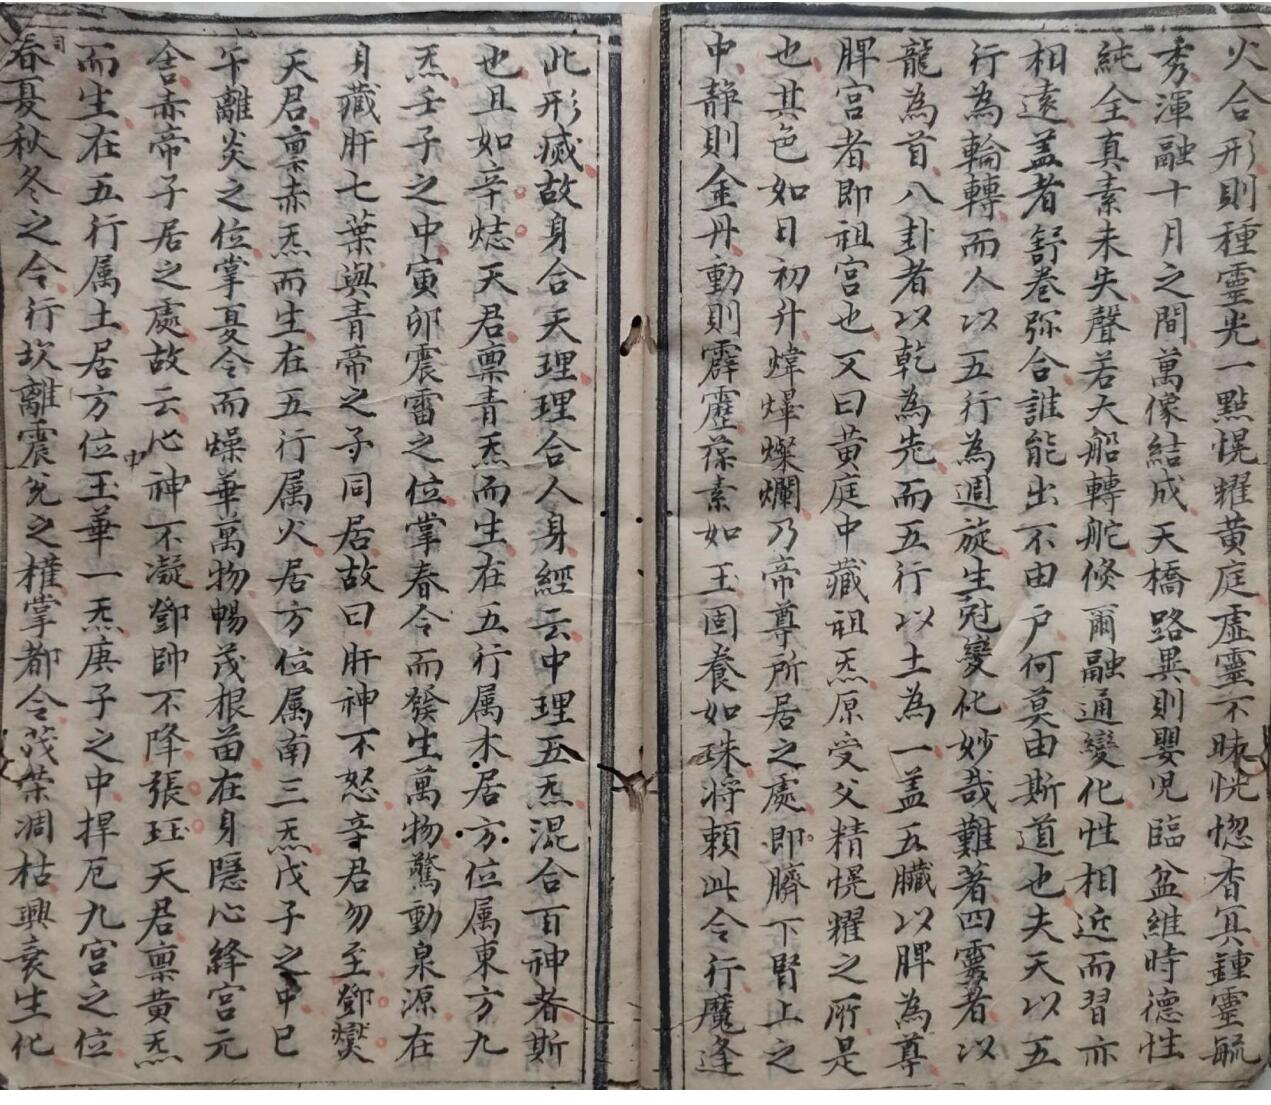 火合形則種靈光一點恍耀黃庭虛靈不昧恍惚杳冥鍾靈毓
秀渾融十月之間萬像結成天橋路異則嬰児臨盆維時德性
純全真素未失聲若大船轉舵倏爾融通變化性相近而習亦
相遠盖者舒卷弥合誰能出不由户何莫由斯道也夫天以五
行為輪轉而人以五行為週旋生尅變化妙哉難著四靈者以
龍為首八卦者以乾為先而五行以土為一盖五臟以脾為尊
脾宮者即祖宮也又曰黃庭中藏祖炁原受父精愰耀之所是
也其色如日初升煒燁燦爛乃帝尊所居之處即臍下腎上之
中静則金丹動則霹靂葆素如王固養如珠将頼此令行魔逢
此形滅故身合天理理合人身經云中理五炁混合百神者斯
也且如辛㷓天君禀青炁而生在五行属木居方位属東方九
炁壬子之中寅卯震雷之位掌春令而發生萬物驚動泉源在
身藏肝七葉與青帝之子同居故曰肝神不怒辛君勿至鄧燮
天君禀赤炁而生在五行属火居方位属南三炁戊子之中巳
午離炎之位掌夏令而燥華萬物暢茂根苗在身隱心絳宮元
舍赤帝子居之處故云心神不凝鄧帥不降張珏天君禀黃炁
而生在五行属土居方位中玉華一炁庚子之中捍厄九宮之位
同春夏秋冬之令行坎離震兌之權掌都令茂荣凋枯興衰生化